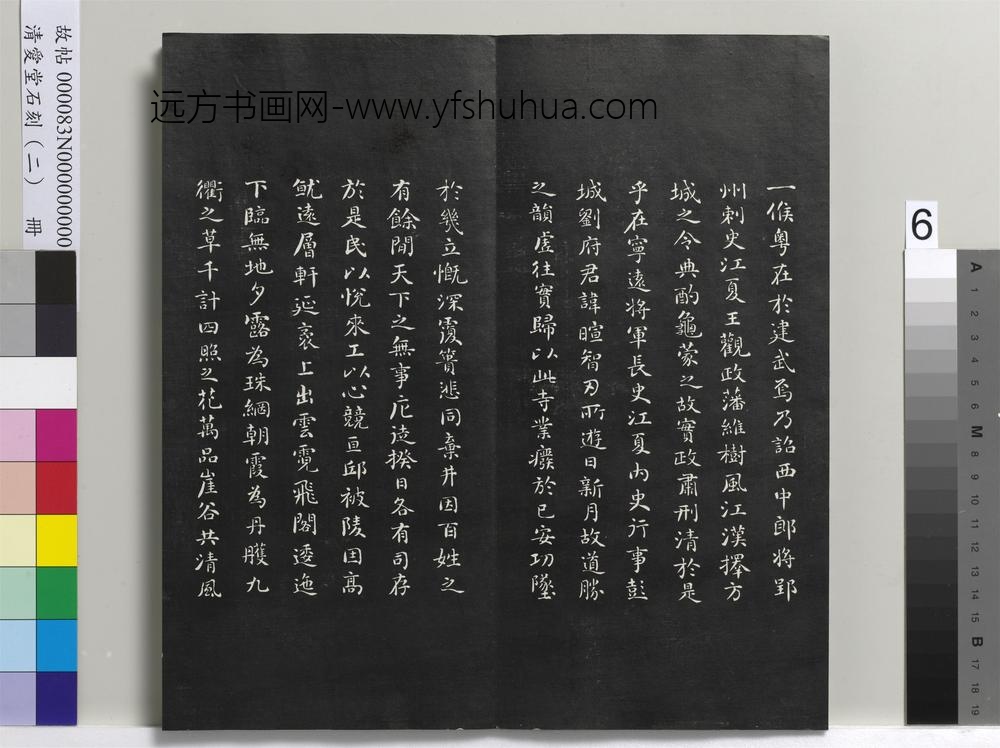 一候粵在於建武焉乃詔西中郎將郢
州刺史江夏王觀政藩維樹風江漢擇方
城之令典酌龜蒙之故實政肅刑清於是
乎在寧遠將軍長史江夏內史行事彭
城劉府君諱暄智刃所遊日新月故道勝
之韻虛往實歸以此寺業癈於已安功墜
於幾立慨深覆簣悲同棄井因百姓之
有餘閒天下之無事庀徒揆日各有司存
於是民以悅來工以心競亘邱被陵因高
就遠層軒延袤上出雲霓飛閣逶迤
下臨無地夕露為珠網朝霞為丹雘九
衢之草千計四照之花萬品崖谷共清風
远方书画网-www.yfshuhua.com
故帖 000083N000000000
清愛堂石刻(二) 冊
6
A
1
2
3
4
5
6
M
8
9
10
11
12
13
14
15
B
17
18
19